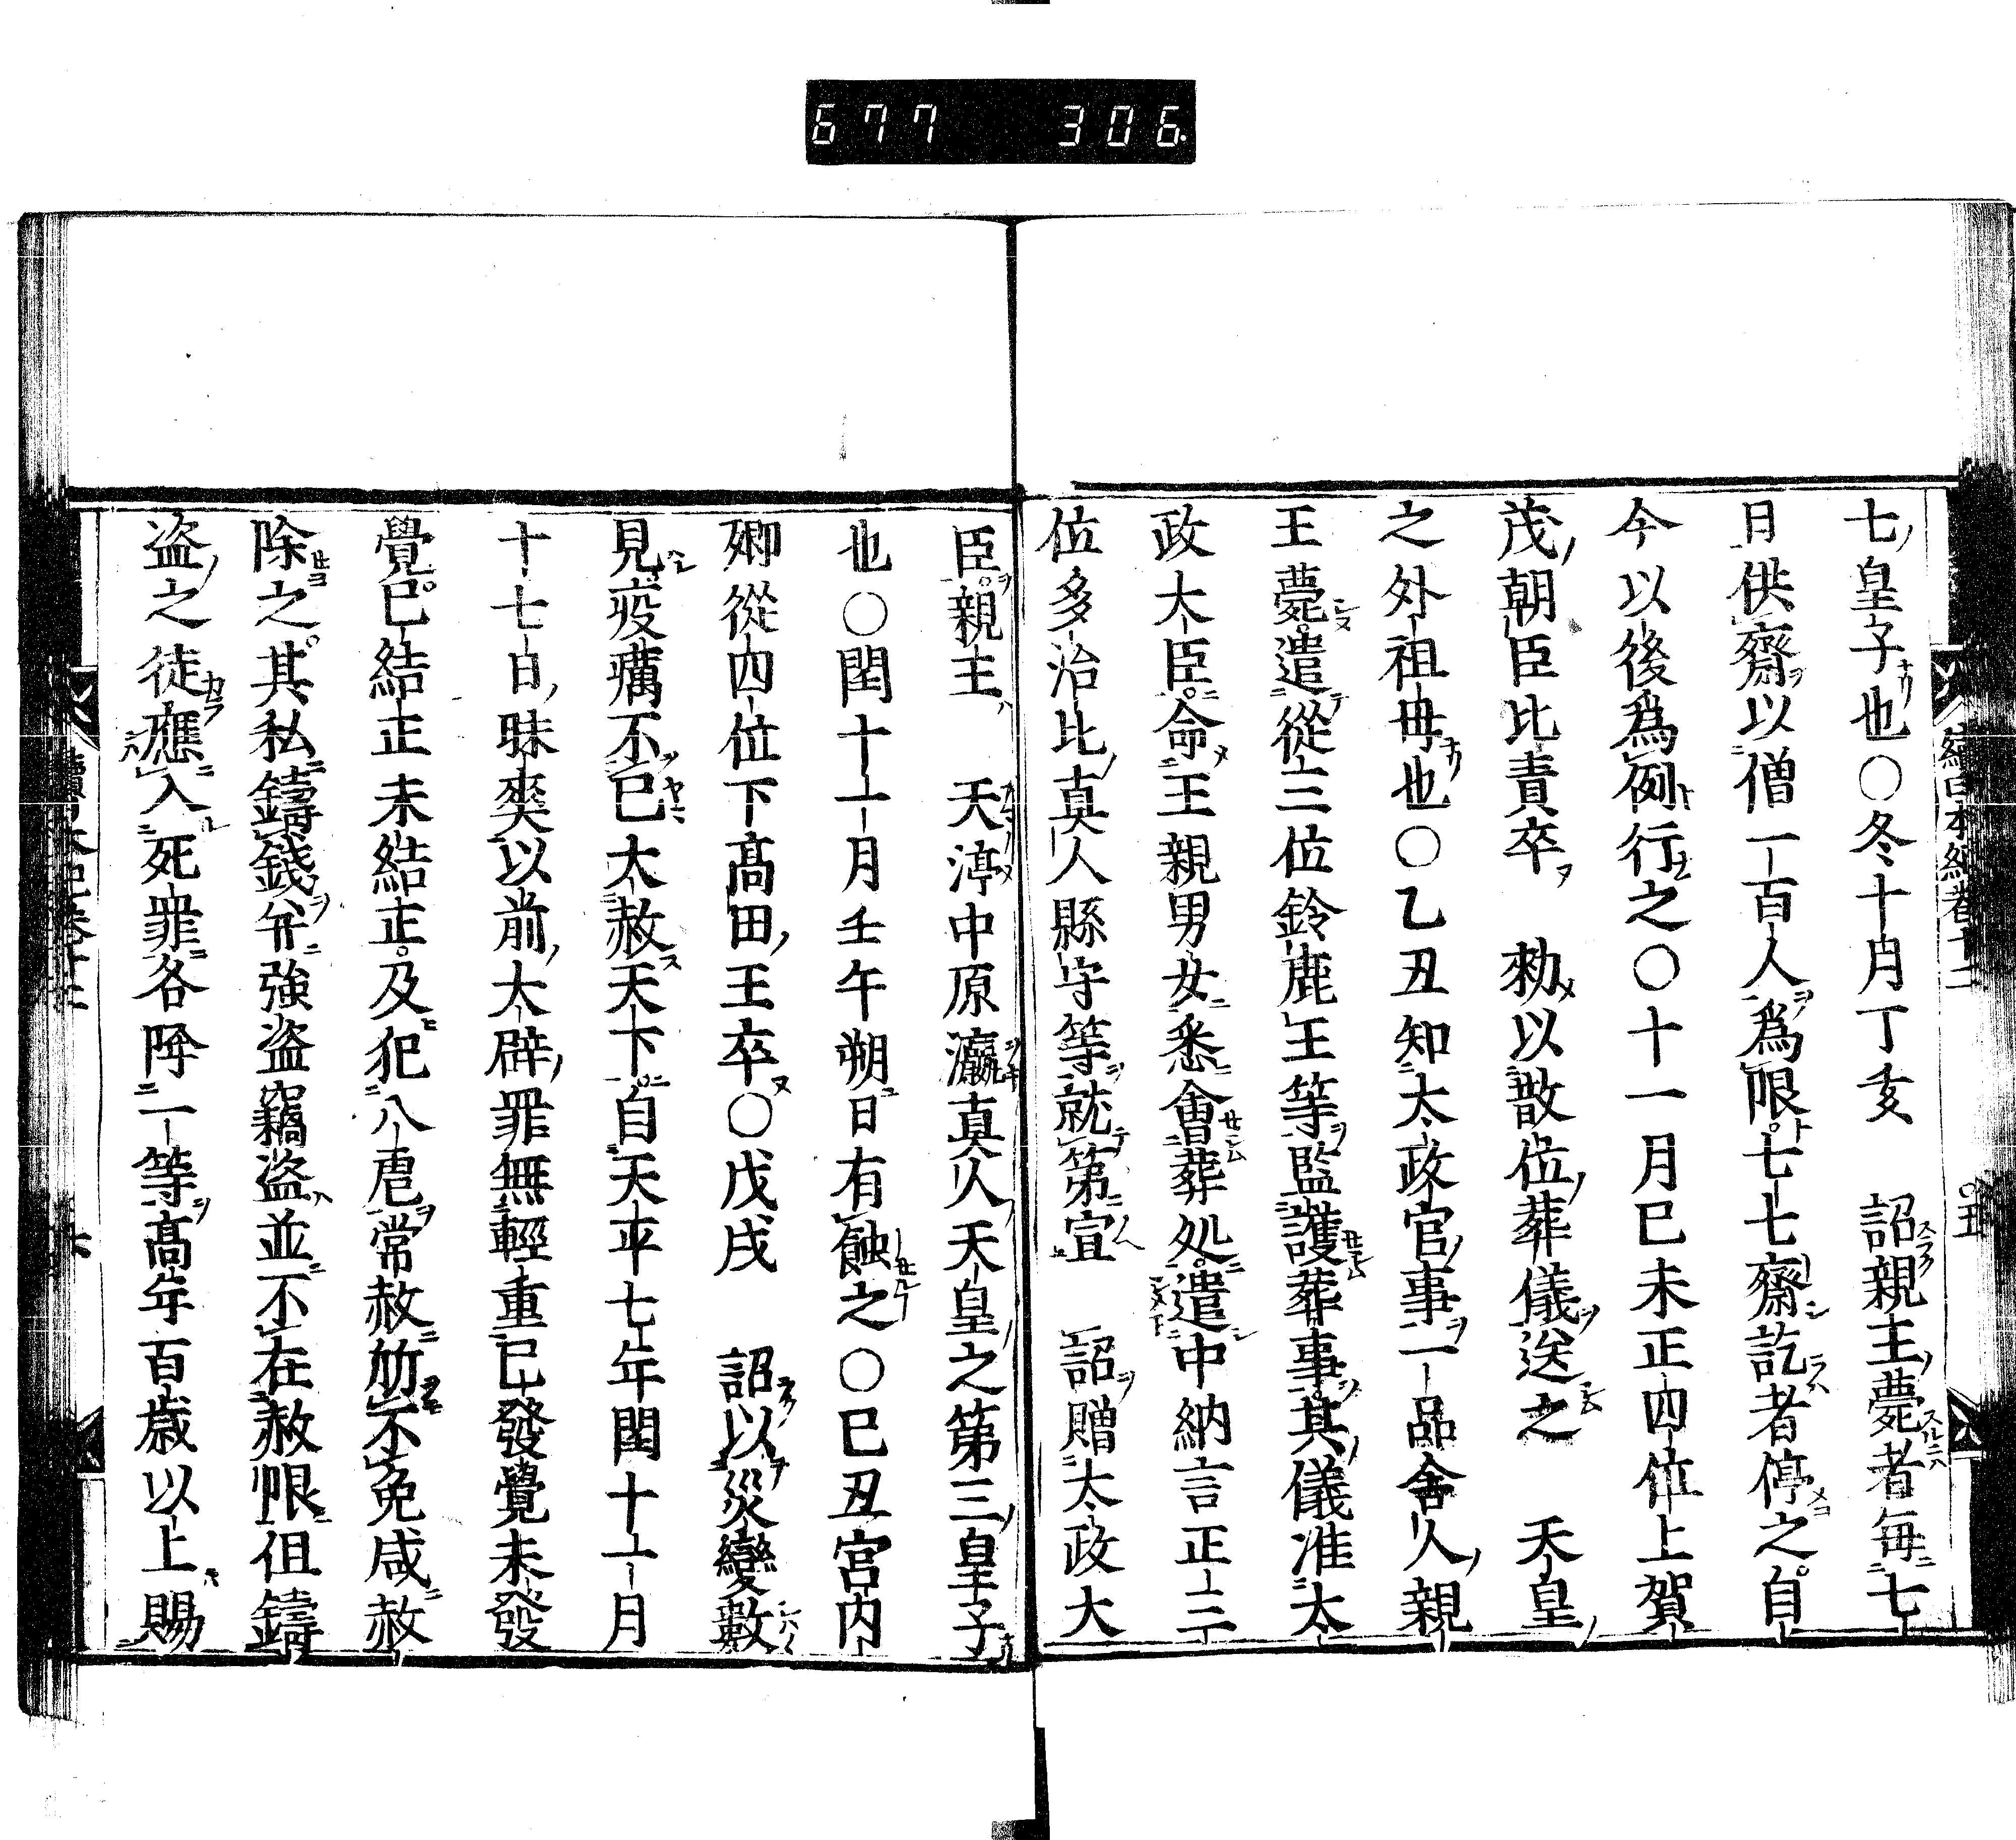 677 306
七皇子也○冬十月丁亥 詔親王薨者毎七
日供齋以僧一百人爲限七七齋訖者停之自
今以後爲例行之○十一月己未正四位上賀
茂朝臣比賣卒 勅以散位葬儀送之 天皇
之外祖毋也○乙丑知太政官事一品舍人親
王薨遣從三位鈴鹿王等監護葬事其儀准太
政大臣命王親男女悉會葬処遣中納言正三
位多治比真人縣守等就第宣 詔贈太政大
臣親王 天渟中原瀛真人天皇之第三皇子
也○閏十一月壬午朔日有蝕之○己丑宮内
卿從四位下髙田王卒○戊戌 詔以災變數
見疫癘不已大赦天下自天平七年閏十一月
十七日昧爽以前大辟罪無輕重已發覺未發
覺已結正未結正及犯八虐常赦所不免咸赦
除之其私鑄錢并強盗竊盗並不在赦限但鑄
盗之徒應入死罪各降一等髙年百歳以上賜